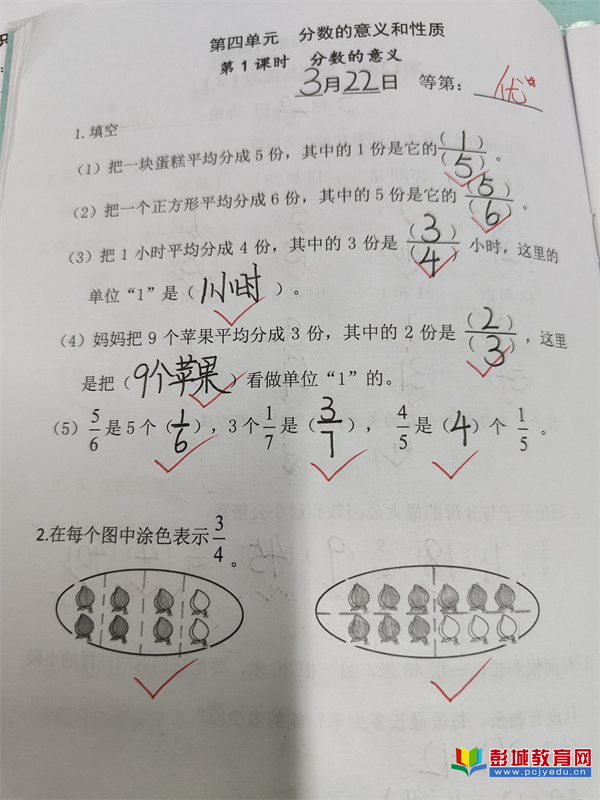 第四单元 分数的意义和性质
第1课时 分数的意义
3月22日 等第：优
1.填空
（1）把一块蛋糕平均分成5份，其中的1份是它的(1)/(5)。
（2）把一个正方形平均分成6份，其中的5份是它的(5)/(6)。
（3）把1小时平均分成4份，其中的3份是(3)/(4)小时，这里的
单位“1”是（1小时）。
（4）妈妈把9个苹果平均分成3份，其中的2份是(2)/(3)，这里
是把（9个苹果）看做单位“1”的。
（5）5/6是5个（1/6），3个1/7是（3/7），4/5是（4）个1/5。
2.在每个图中涂色表示3/4。
彭城教育网
www.pcjyedu.cn